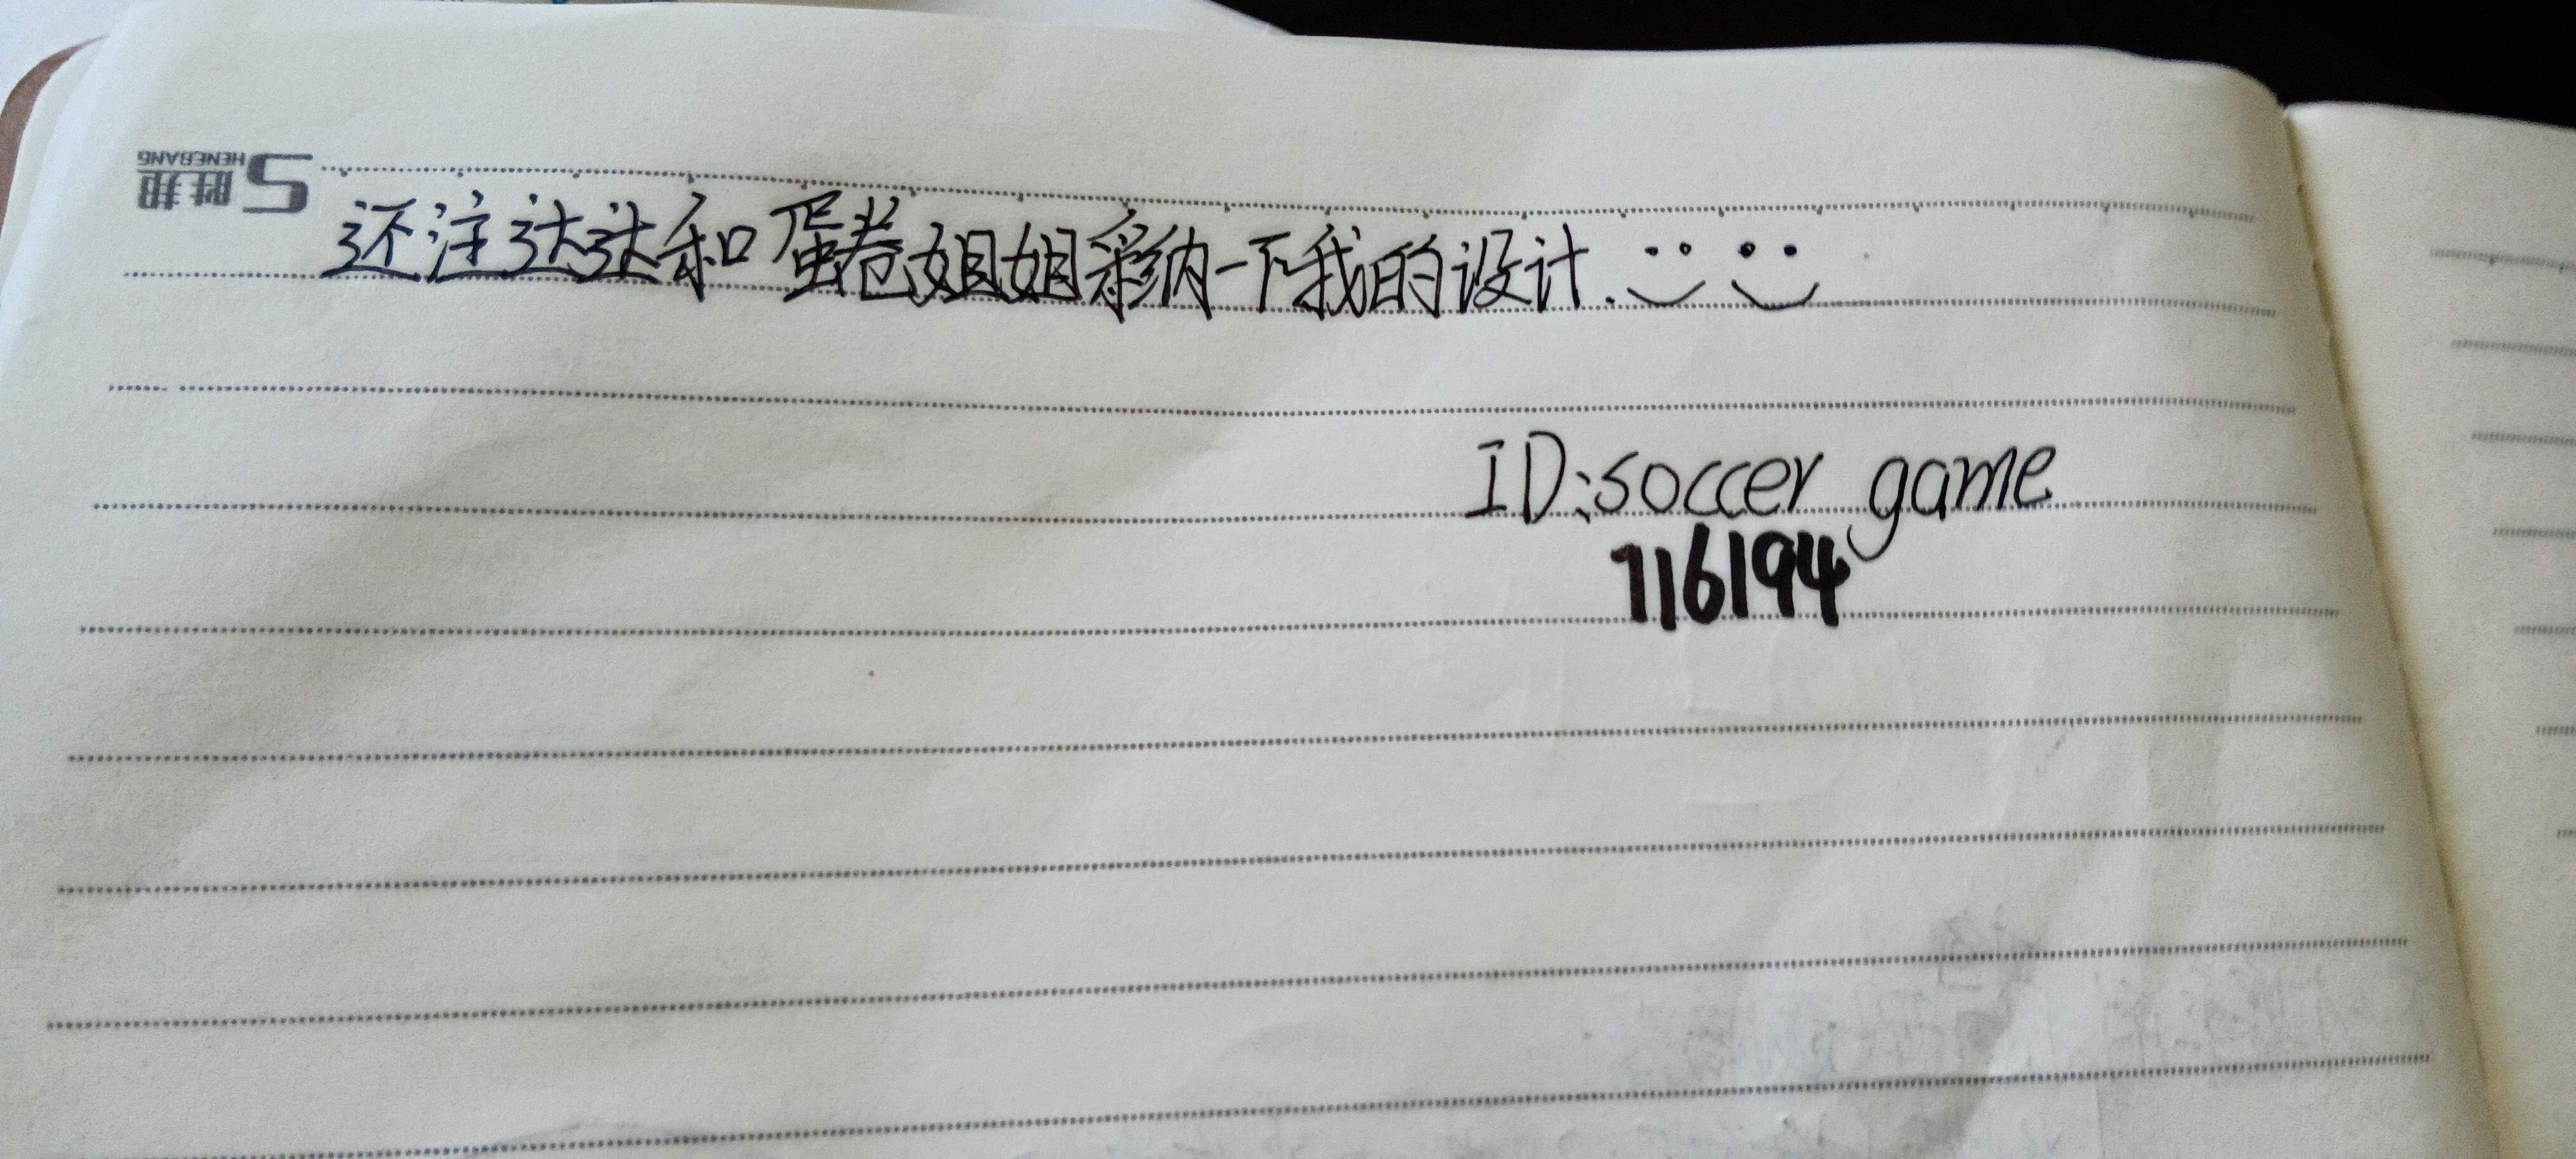 SHENGBANG
胜邦
还注达达和蛋卷姐姐彩纳一下我的设计.
ID:soccer game
716194